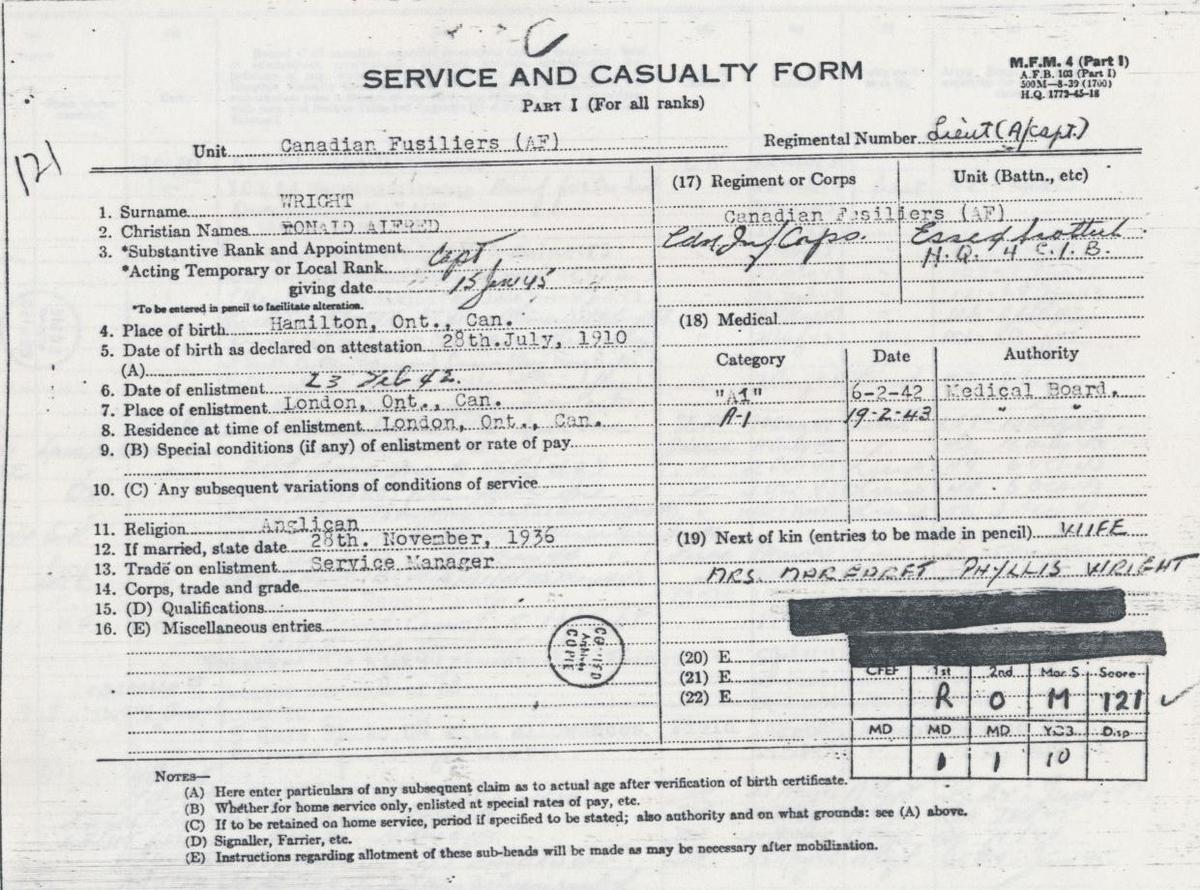 SERVICE AND CASUALTY FORM
PART I (For all ranks)
M.F.M. 4 (Part I)
A.F.B. 103 (Part I)
500M—8-39 (1700)
H.Q. 1772-45-18
121
Unit Canadian Fusiliers (AF)
Regimental Number Lieut (A/Capt.)
1. Surname WRIGHT
2. Christian Names RONALD ALFRED
3. *Substantive Rank and Appointment Capt
*Acting Temporary or Local Rank
giving date 15 Jan 45
*To be entered in pencil to facilitate alteration.
4. Place of birth Hamilton, Ont., Can.
5. Date of birth as declared on attestation 28th. July, 1910
(A)
6. Date of enlistment 23 Feb 42.
7. Place of enlistment London, Ont., Can.
8. Residence at time of enlistment London, Ont., Can.
9. (B) Special conditions (if any) of enlistment or rate of pay
10. (C) Any subsequent variations of conditions of service
11. Religion Anglican
12. If married, state date 28th. November, 1936
13. Trade on enlistment Service Manager
14. Corps, trade and grade
15. (D) Qualifications
16. (E) Miscellaneous entries
CERTIFIED
Archives
COPIE
(17) Regiment or Corps Unit (Battn., etc)
Canadian Fusiliers (AF)
Cdn Inf Corps. Essex Scottish
H.Q. 4 C.I.B.
(18) Medical
Category Date Authority
"A1" 6-2-42 Medical Board.
A-1 19-2-43 " "
(19) Next of kin (entries to be made in pencil) WIFE
MRS. MARGARET PHYLLIS WRIGHT
(20) E
(21) E
(22) E
CFEF 1st 2nd Mar.S Score
R O M 121
MD MD MD Disp
1 1 10
NOTES—
(A) Here enter particulars of any subsequent claim as to actual age after verification of birth certificate.
(B) Whether for home service only, enlisted at special rates of pay, etc.
(C) If to be retained on home service, period if specified to be stated; also authority and on what grounds: see (A) above.
(D) Signaller, Farrier, etc.
(E) Instructions regarding allotment of these sub-heads will be made as may be necessary after mobilization.